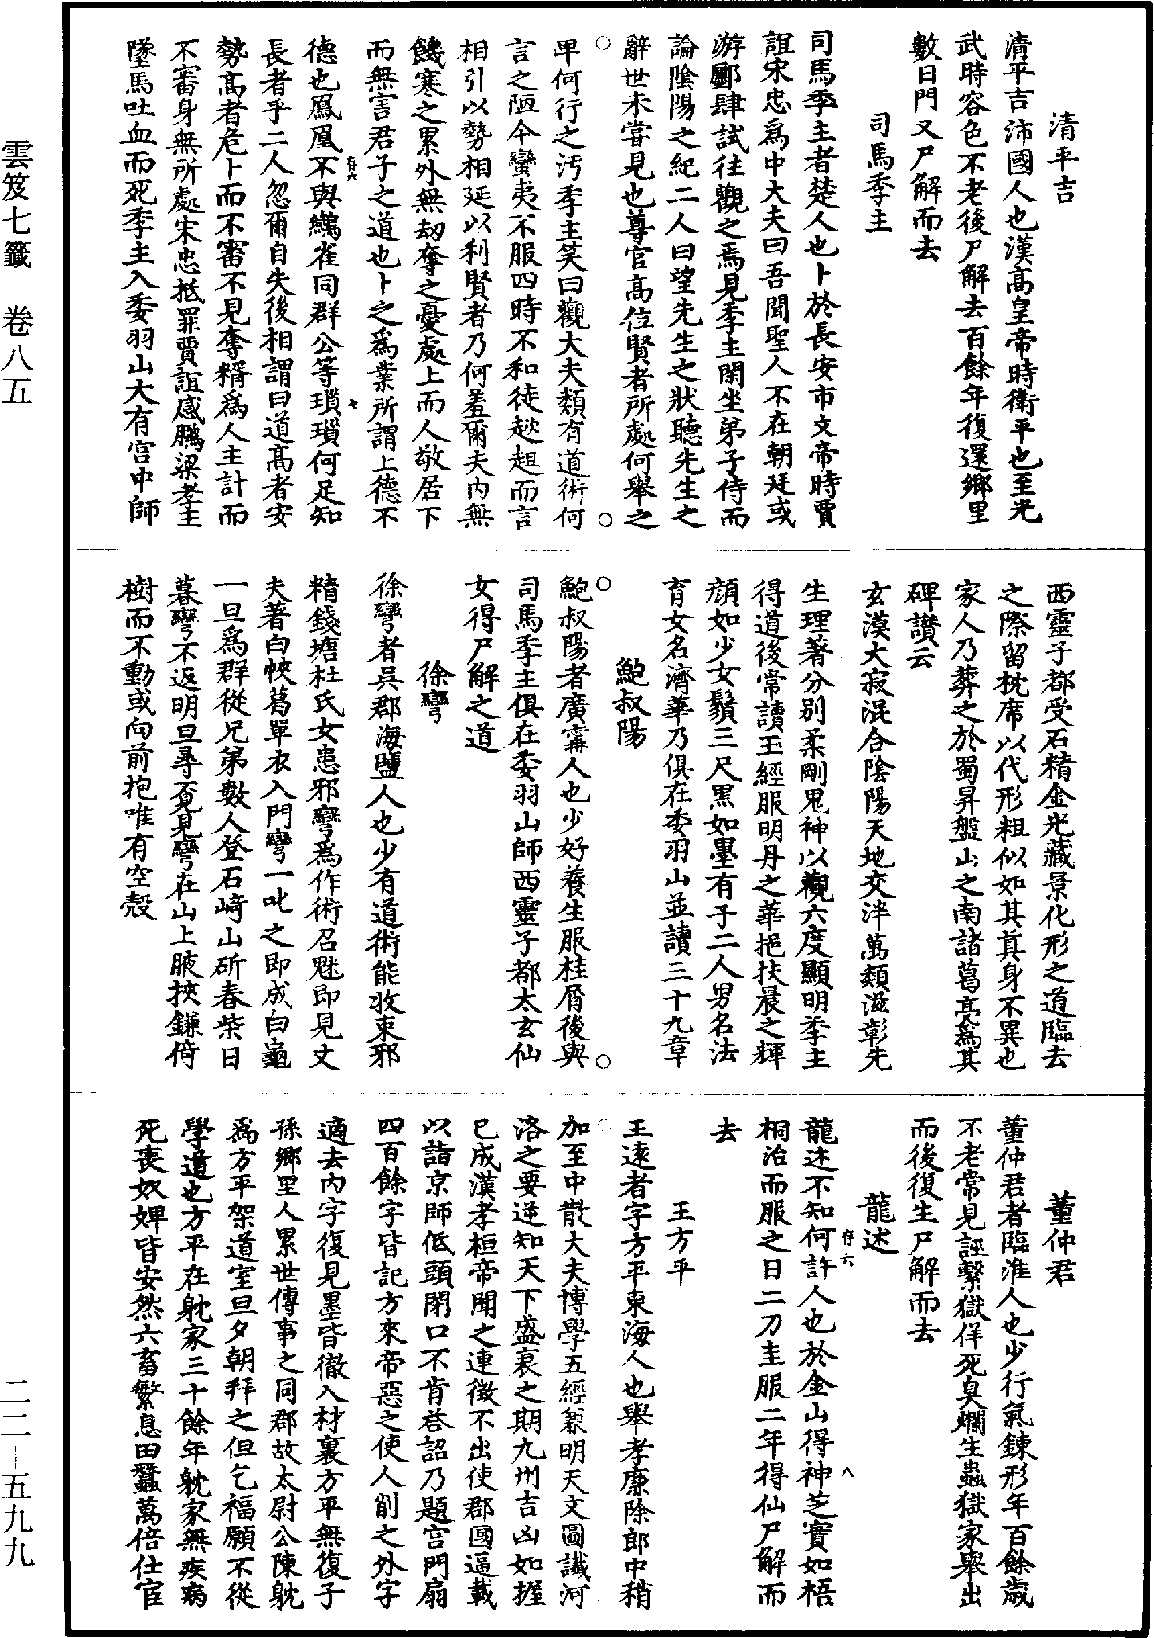 雲笈七籤　卷八五
二二—五九九
清平吉
清平吉沛國人也漢高皇帝時衛平也至光
武時容色不老後尸解去百餘年復還鄉里
數日門又尸解而去
司馬季主
司馬季主者楚人也卜於長安市文帝時賈
誼宋忠爲中大夫曰吾聞聖人不在朝廷或
游鄽肆試往觀之焉見季主閑坐弟子侍而
論陰陽之紀二人曰望先生之狀聽先生之
辭世未嘗見也尊官高位賢者所處何舉之
卑何行之汚季主笑曰觀大夫類有道術何
言之陋今蠻夷不服四時不和徒趑趄而言
相引以勢相延以利賢者乃何羞爾夫內無
饑寒之累外無劫奪之憂處上而人敬居下
而無害君子之道也卜之爲業所謂上德不
德也鳳凰不與鷰雀同群公等瑣瑣何足知
長者乎二人忽爾自失後相謂曰道高者安
勢高者危卜而不審不見奪糈爲人主計而
不審身無所處宋忠抵罪賈誼感鵬梁孝主
墜馬吐血而死季主入委羽山大有宮中師
西靈子都受石精金光藏景化形之道臨去
之際留枕席以代形粗似如其真身不異也
家人乃葬之於蜀昇盤山之南諸葛亮爲其
碑讚云
玄漠大寂混合陰陽天地交泮萬類滋彰先
生理著分別柔剛鬼神以觀六度顯明季主
得道後常讀玉經服明丹之華挹扶晨之輝
顔如少女鬚三尺黑如墨有子二人男名法
育女名濟華乃俱在委羽山並讀三十九章
鮑叔陽
鮑叔陽者廣甯人也少好養生服桂屑後與
司馬季主俱在委羽山師西靈子都太玄仙
女得尸解之道
徐彎
徐彎者吳郡海鹽人也少有道術能收束邪
精錢塘杜氏女患邪彎爲作術召魅即見丈
夫著白帢葛單衣入門彎一叱之即成白龜
一旦爲群從兄弟數人登石崎山斫春柴日
暮彎不返明旦尋覓見彎在山上腋挾鎌倚
樹而不動或向前抱唯有空殼
董仲君
董仲君者臨淮人也少行氣鍊形年百餘歲
不老常見誣繫獄佯死臭爛生蟲獄家舉出
而後復生尸解而去
龍述
龍述不知何許人也於金山得神芝實如梧
桐治而服之日二刀圭服二年得仙尸解而
去
王方平
王遠者字方平東海人也舉孝廉除郎中稍
加至中散大夫博學五經兼明天文圖讖河
洛之要逆知天下盛衰之期九州吉凶如握
已成漢孝桓帝聞之連徵不出使郡國逼載
以詣京師低頭閉口不肯荅詔乃題宮門扇
四百餘字皆記方來帝惡之使人削之外字
適去內字復見墨皆徹入材裏方平無復子
孫鄉里人累世傳事之同郡故太尉公陳躭
爲方平架道室旦夕朝拜之但乞福願不從
學道也方平在躭家三十餘年躭家無疾病
死喪奴婢皆安然六畜繁息田蠶萬倍仕宦